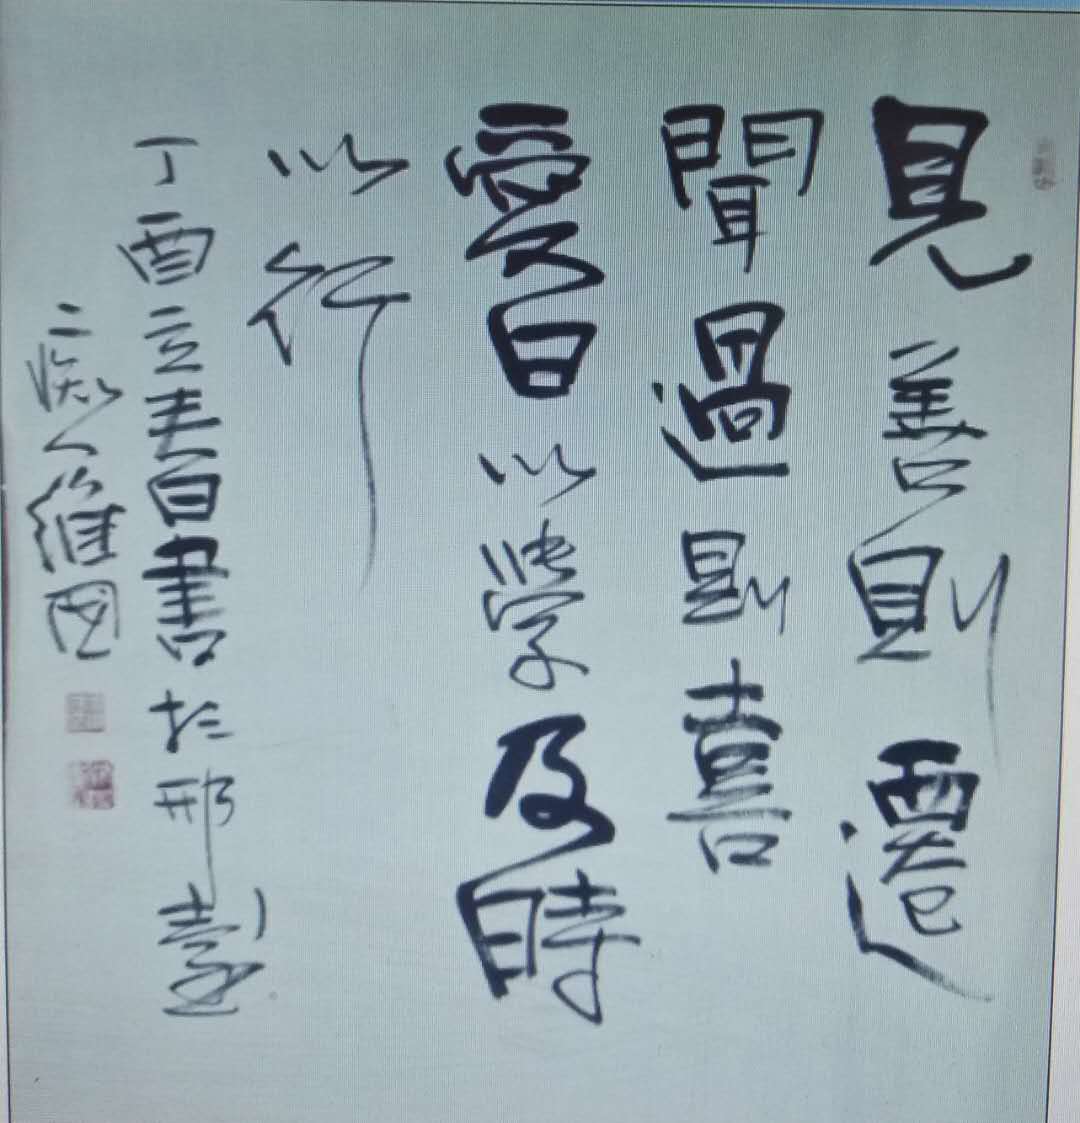 見善則遷
聞過則喜
愛日以學及時
以行
丁酉立春日書於邢臺
二痴人維國